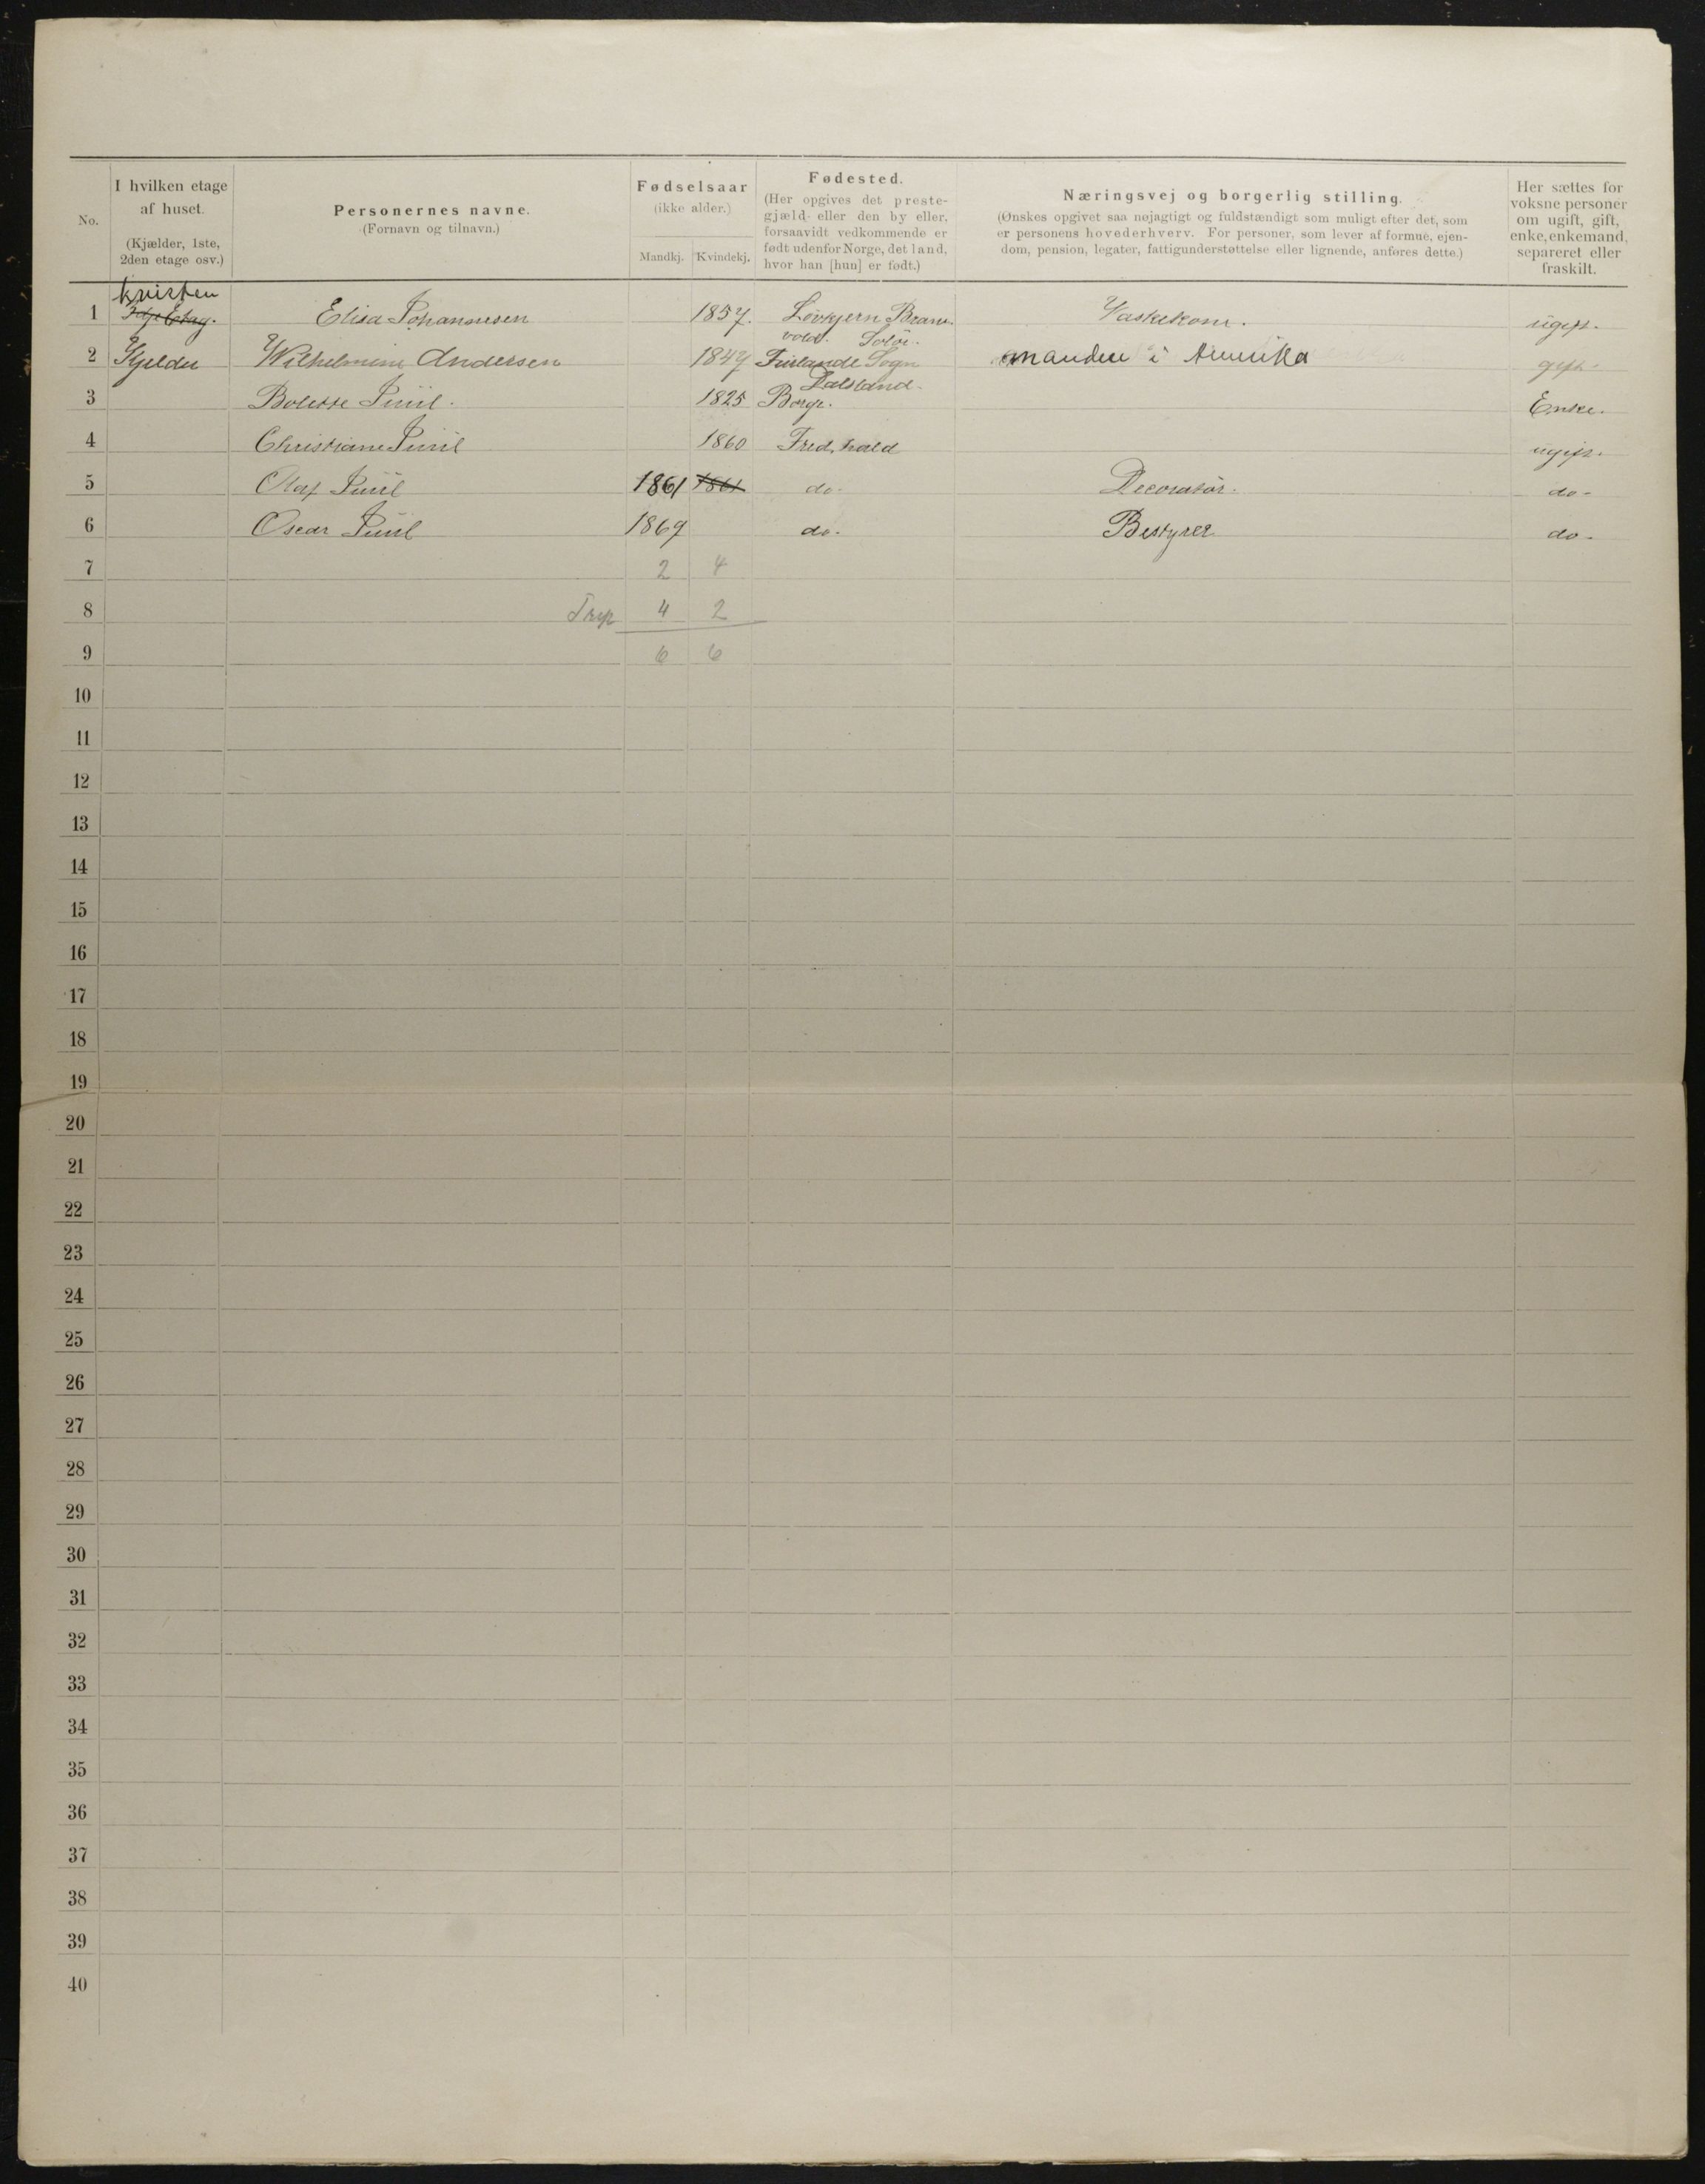 No.
I hvilken etage
af huset.
(Kjælder, 1ste,
2den etage osv.)
Personernes navne.
(Fornavn og tilnavn.)
Fødselsaar
(ikke alder.)
Mandkj. Kvindekj.
Fødested.
(Her opgives det preste-
gjæld eller den by eller,
forsaavidt vedkommende er
født udenfor Norge, det land,
hvor han [hun] er født.)
Næringsvej og borgerlig stilling.
(Ønskes opgivet saa nøjagtigt og fuldstændigt som muligt efter det, som
er personens hovederhverv. For personer, som lever af formue, ejen-
dom, pension, legater, fattigunderstøttelse eller lignende, anføres dette.)
Her sættes for
voksne personer
om ugift, gift,
enke, enkemand,
separeret eller
fraskilt.
kvisten
1 Etag. Elisa Johannesen 1857. Løvhjern Bran- Vaskekone. ugift.
vold. Solør.
2 Kjelder Wilhelmine Andersen 1847 Sogn manden i Amerika gift.
Dalsland.
3 Bolette Juul. 1825 Borge. Enke.
4 Christiane Juul 1860 Fred.hald ugift.
5 Olaf Juul 1861 1861 do. Decoratør. do-
6 Oscar Juul 1869 do. Bestyrer do-
7 2 4
8 4 2
9 6 6
10
11
12
13
14
15
16
17
18
19
20
21
22
23
24
25
26
27
28
29
30
31
32
33
34
35
36
37
38
39
40